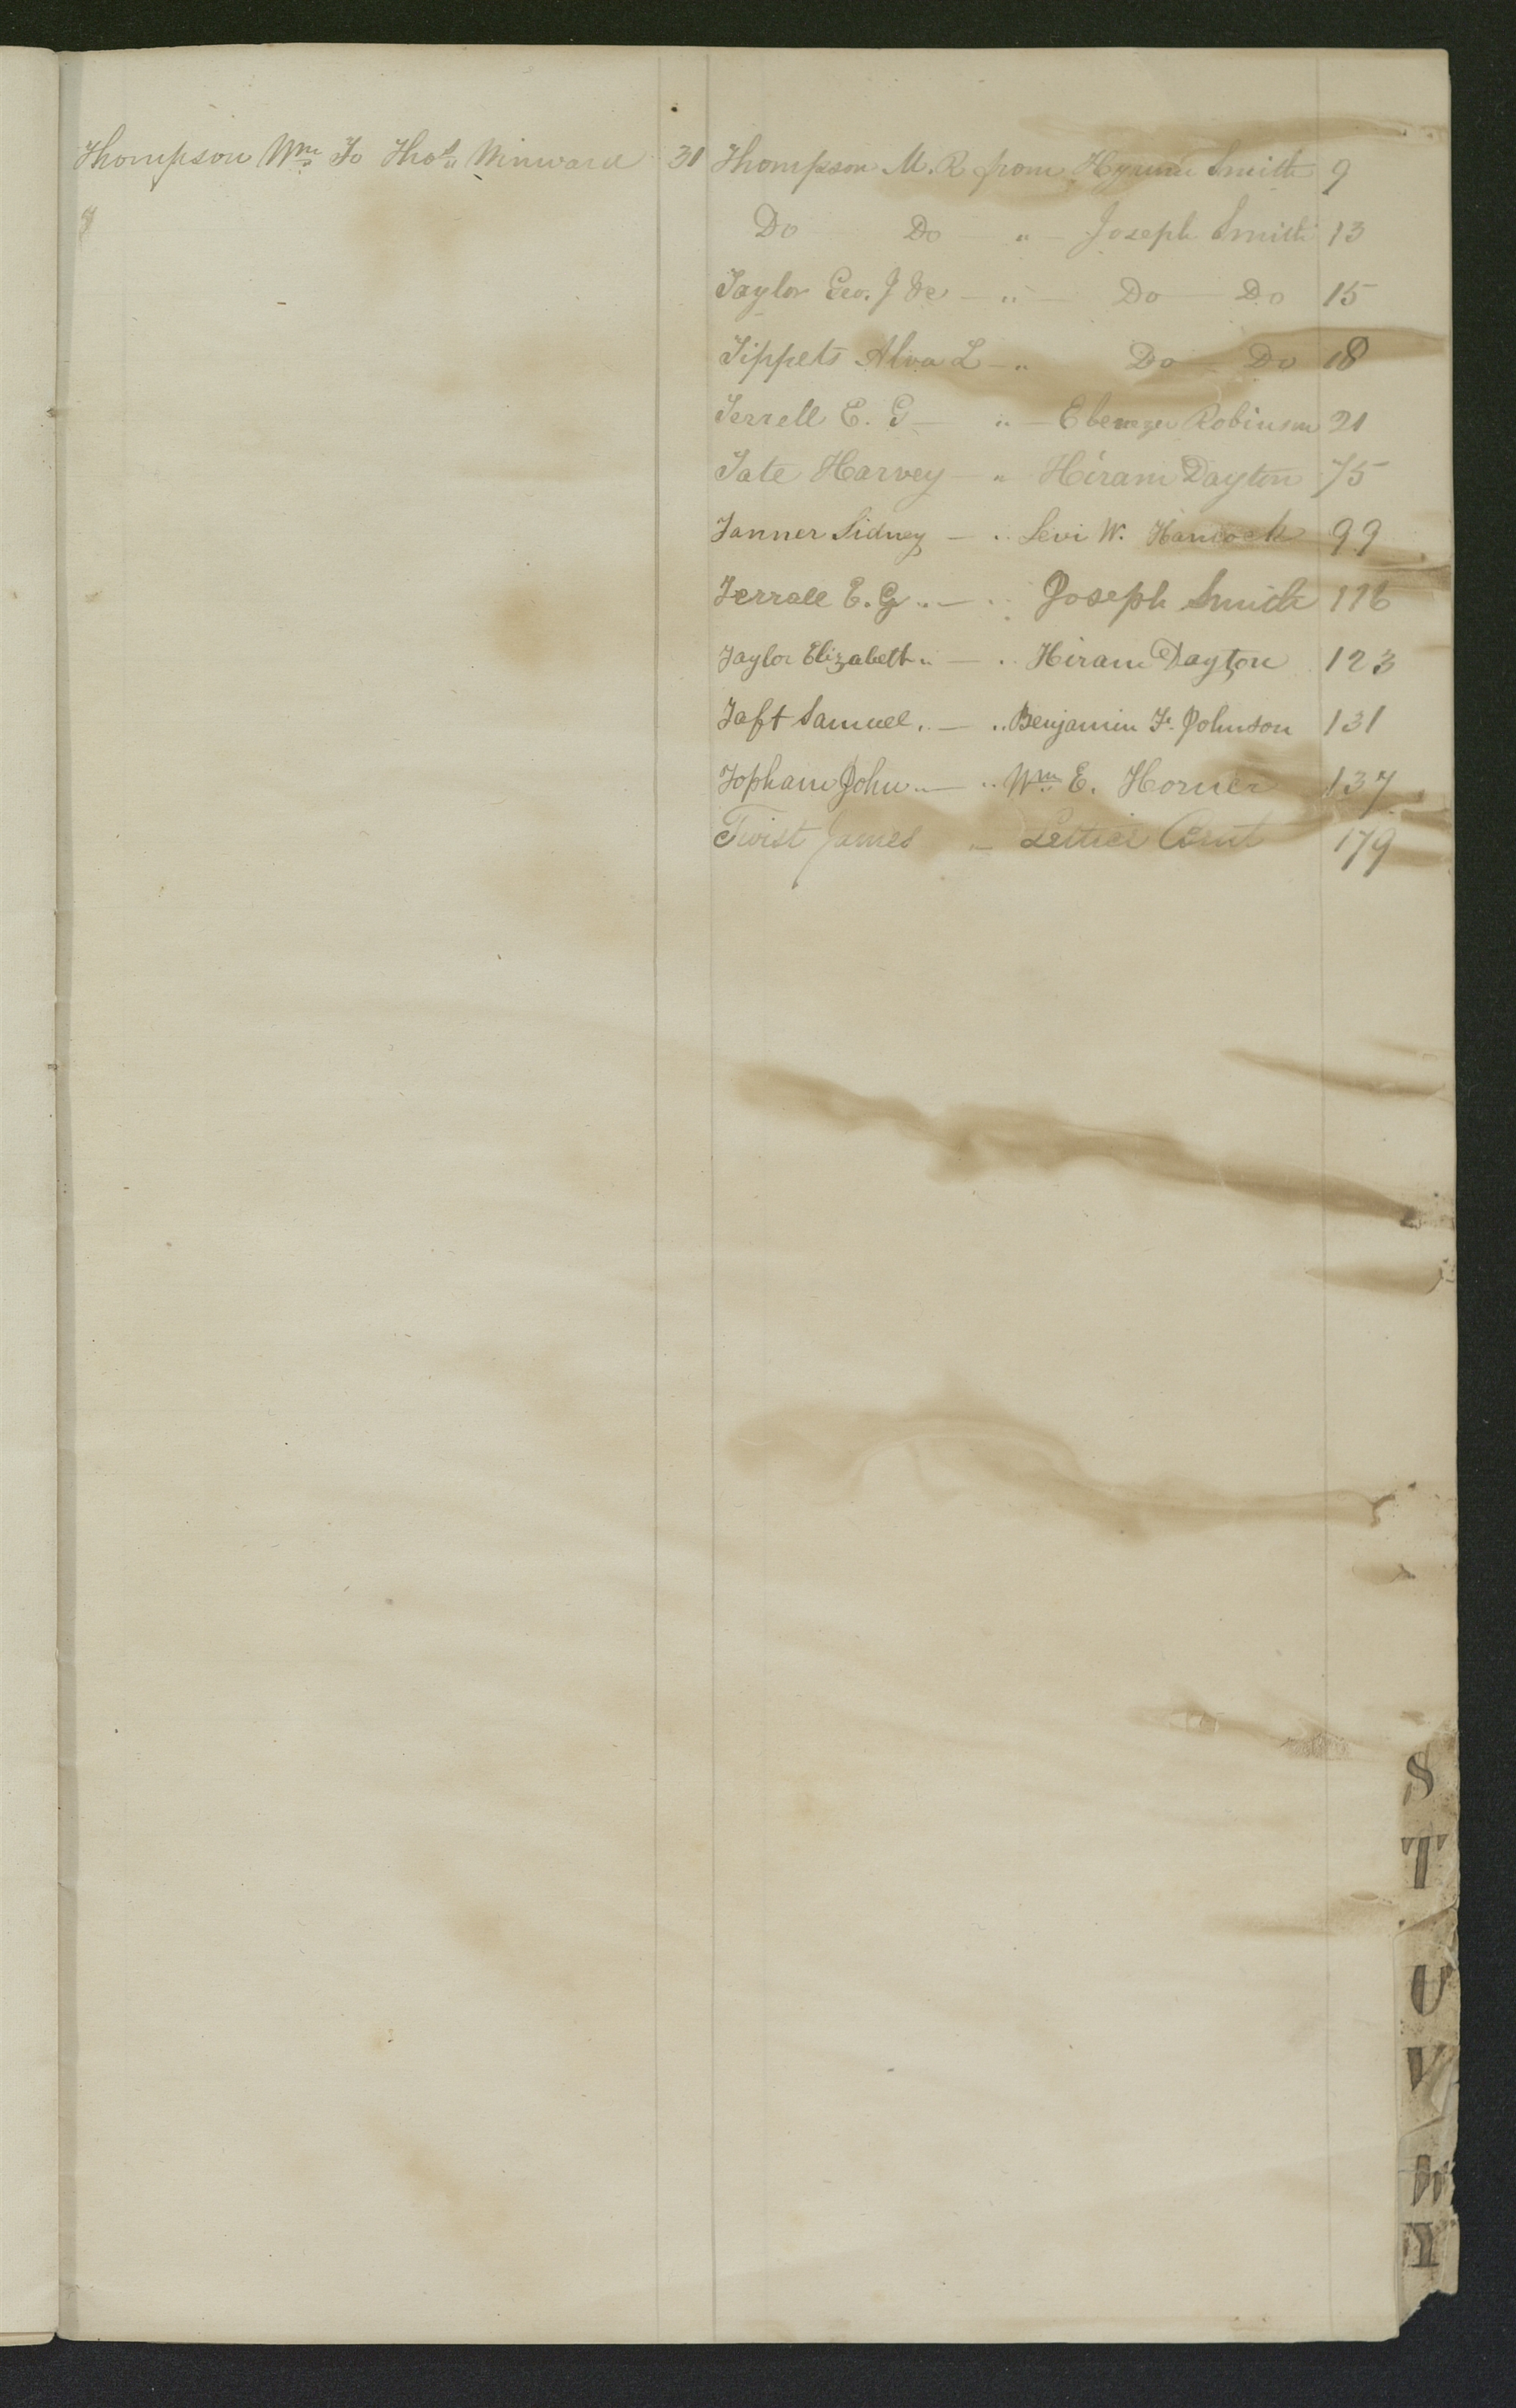 Thompson Wm. To Thos. Winward 31
Thompson M. R from Hyrum Smith 9
Do Do " Joseph Smith 13
Taylor Geo. J &c — " — Do Do 15
Tippets Alva L — " Do Do 18
Terrell E. G — " — Ebenezer Robinson 21
Tate Harvey — " Hiram Dayton 75
Tanner Sidney — " Levi W. Hancock 99
Terrall E. G " — " Joseph Smith 116
Taylor Elizabeth " — " Hiram Dayton 123
Taft Samuel " — " Benjamin F. Johnson 131
Topham John " — " Wm. E. Horner 137
Twist James " 179
S
T
U
V
W
Y